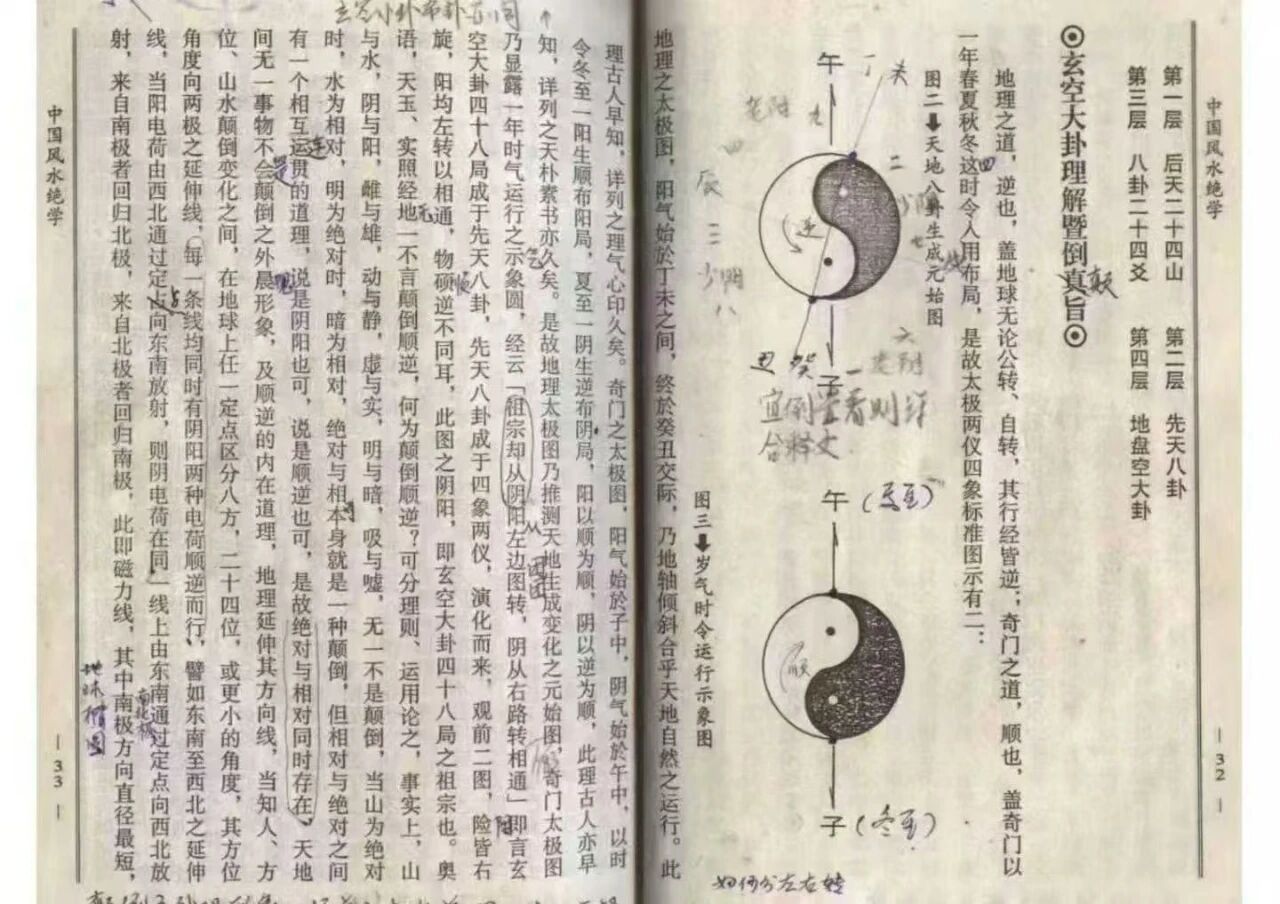 中国风水绝学
— 32 —
第一层 后天二十四山 第二层 先天八卦
第三层 八卦二十四爻 第四层 地盘空大卦
⊙玄空大卦理解暨倒真旨⊙
颠
地理之道，逆也，盖地球无论公转、自转，其行经皆逆；奇门之道，顺也，盖奇门以
一年春夏秋冬这时令人用布局，是故太极两仪四象标准图示有二：
四
图二⬇天地八卦生成元始图
午
丁未
老阳
九
四
二
少阴
辰
三
少阴
八
七
逆
六
丑 癸
子
一
宜倒置看则详
合释文
图三⬇岁气时令运行示象图
午
(夏至)
顺
子
(冬至)
地理之太极图，阳气始於丁未之间，终於癸丑交际，乃地轴倾斜合乎天地自然之运行。此
如何分左右转
理古人早知，详列之理气心印久矣。奇门之太极图，阳气始於子中，阴气始於午中，以时
令冬至一阳生顺布阳局，夏至一阴生逆布阴局，阳以顺为顺，阴以逆为顺，此理古人亦早
知，详列之天朴素书亦久矣。是故地理太极图乃推测天地生成变化之元始图，奇门太极图
气
乃显露一年时气运行之示象圆，经云「祖宗却从阴阳左边图转，阴从右路转相通」即言玄
从
团团
空大卦四十八局成于先天八卦，先天八卦成于四象两仪，演化而来，观前二图，险皆右
阴
旋，阳均左转以相通，物硕逆不同耳，此图之阴阳，即玄空大卦四十八局之祖宗也。奥
顺
语，天玉、实照经地一不言颠倒顺逆，何为颠倒顺逆？可分理则、运用论之，事实上，山
无
与水，阴与阳，雌与雄，动与静，虚与实，明与暗，吸与嘘，无一不是颠倒，当山为绝对
时，水为相对，明为绝对时，暗为相对，绝对与相本身就是一种颠倒，但相对与绝对之间
对
有一个相互运贯的道理，说是阴阳也可，说是顺逆也可，是故绝对与相对同时存在，天地
连
间无一事物不会颠倒之外晨形象，及顺逆的内在道理，地理延伸其方向线，当知人、方
是
现
位、山水颠倒变化之间，在地球上任一定点区分八方，二十四位，或更小的角度，其方位
角度向两极之延伸线，（每一条线均同时有阴阳两种电荷顺逆而行，譬如东南至西北之延伸
线，当阳电荷由西北通过定点向东南放射，则阴电荷在同一线上由东南通过定点向西北放
点
射，来自南极者回归北极，来自北极者回归南极，此即磁力线，其中南极方向直径最短，
南北极
地球椭圆
中国风水绝学
— 33 —